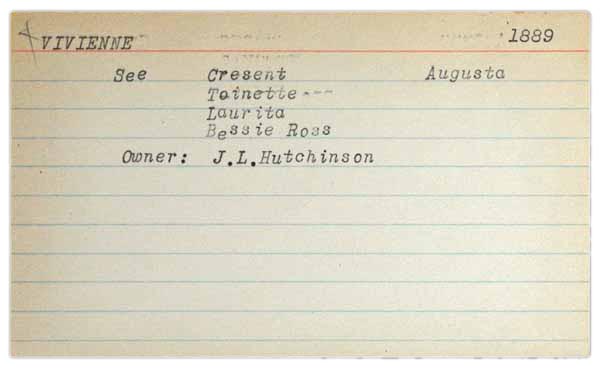 VIVIENNE 1889
See Cresent Augusta
Toinette ---
Laurita
Bessie Ross
Owner: J.L.Hutchinson